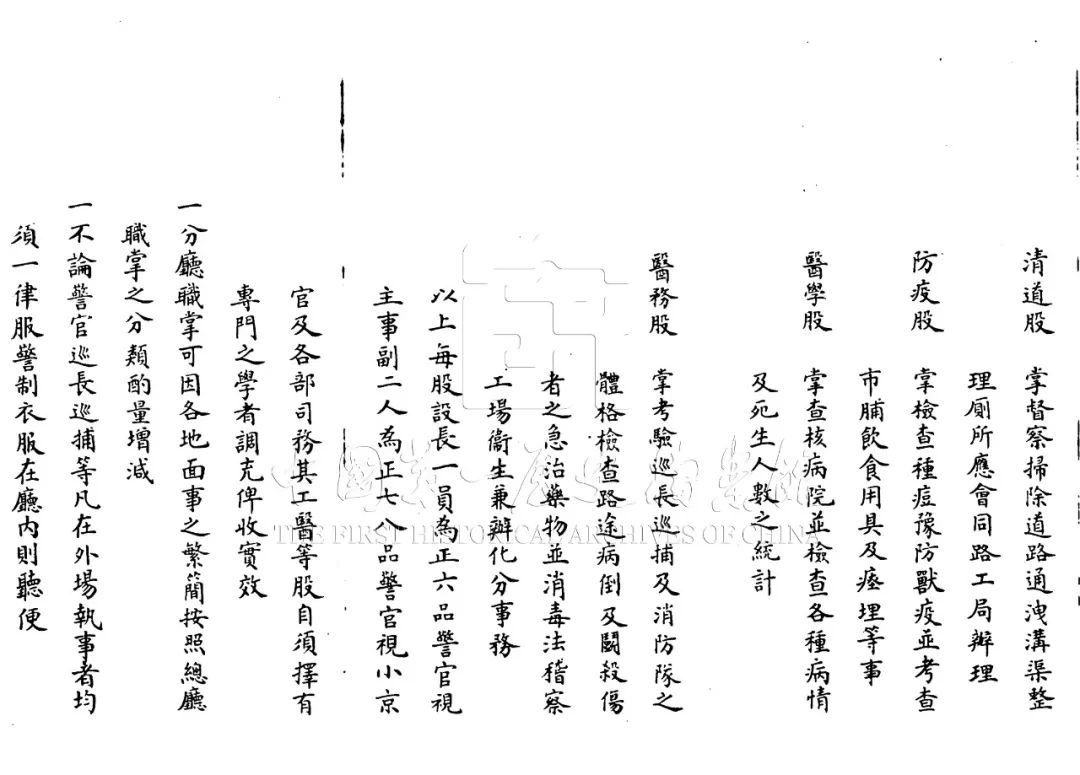 清道股 掌督察掃除道路通洩溝渠整
理廁所應會同路工局辦理
防疫股 掌檢查種痘豫防獸疫並考查
市脯飲食用具及瘞埋等事
醫學股 掌查核病院並檢查各種病情
及死生人數之統計
醫務股 掌考驗巡長巡捕及消防隊之
體格檢查路途病倒及鬪殺傷
者之急治藥物並消毒法稽察
工場衞生兼辦化分事務
以上每股設長一員為正六品警官視
主事副二人為正七八品警官視小京
官及各部司務其工醫等股自須擇有
專門之學者調充俾收實效
一分廳職掌可因各地面事之繁簡按照總廳
職掌之分類酌量增減
一不論警官巡長巡捕等凡在外場執事者均
須一律服警制衣服在廳內則聽便
中國第一歷史檔案館
THE FIRST HISTORICAL ARCHIVES OF CHINA